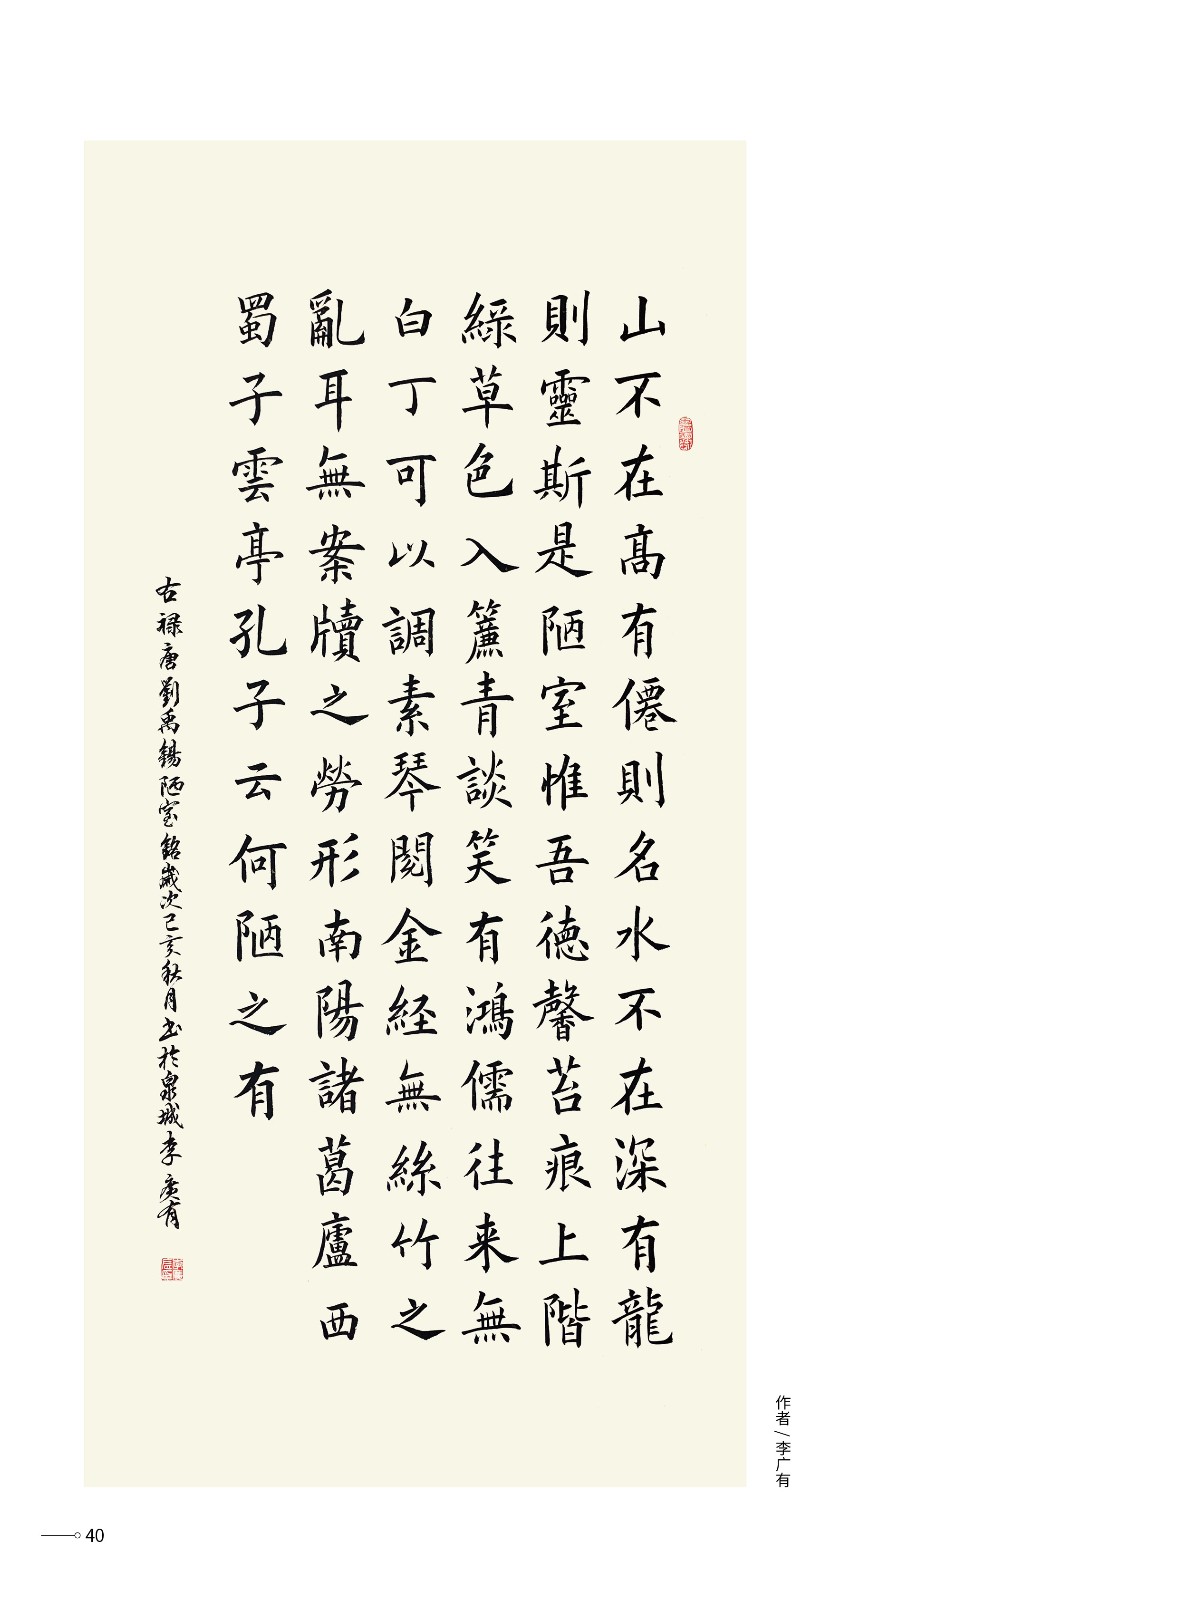 山不在高有僊則名水不在深有龍
則靈斯是陋室惟吾德馨苔痕上階
綠草色入簾青談笑有鴻儒往来無
白丁可以調素琴閱金経無絲竹之
亂耳無案牘之勞形南陽諸葛廬西
蜀子雲亭孔子云何陋之有
右禄唐劉禹錫陋室銘歲次己亥秋月书於泉城李廣有
作者/李广有
40